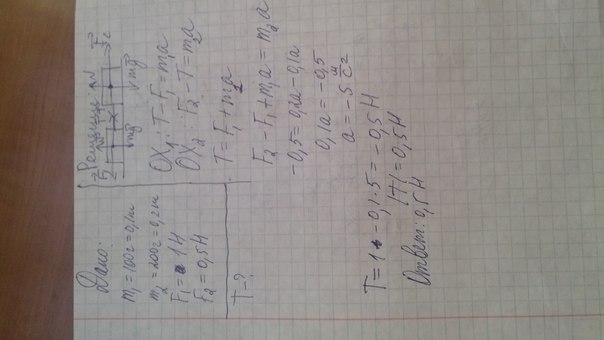 Дано:
m₁ = 100г = 0,1т
m₂ = 200г = 0,2т
F₁ = 1Н
F₂ = 0,5Н
T - ?
Решение:
N
N
F₁
T
T
F₂
x
mg
mg
OX₁: T - F₁ = m₁a
OX₂: F₂ - T = m₂a
T = F₁ + m₂a
F₂ - F₁ + m₁a = m₂a
-0,5 = 0,2a - 0,1a
0,1a = -0,5
a = -5 м/с²
T = 1 - 0,1·5 = -0,5Н
|T| = 0,5Н
Ответ: 0,5Н